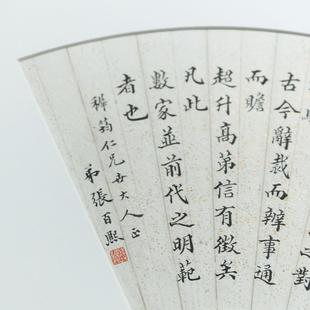 之對
古今辭裁而辨事通
而贍
超升高第信有徵矣
凡此
數家並前代之明範
者也
穉筠仁兄世大人正
弟張百熙